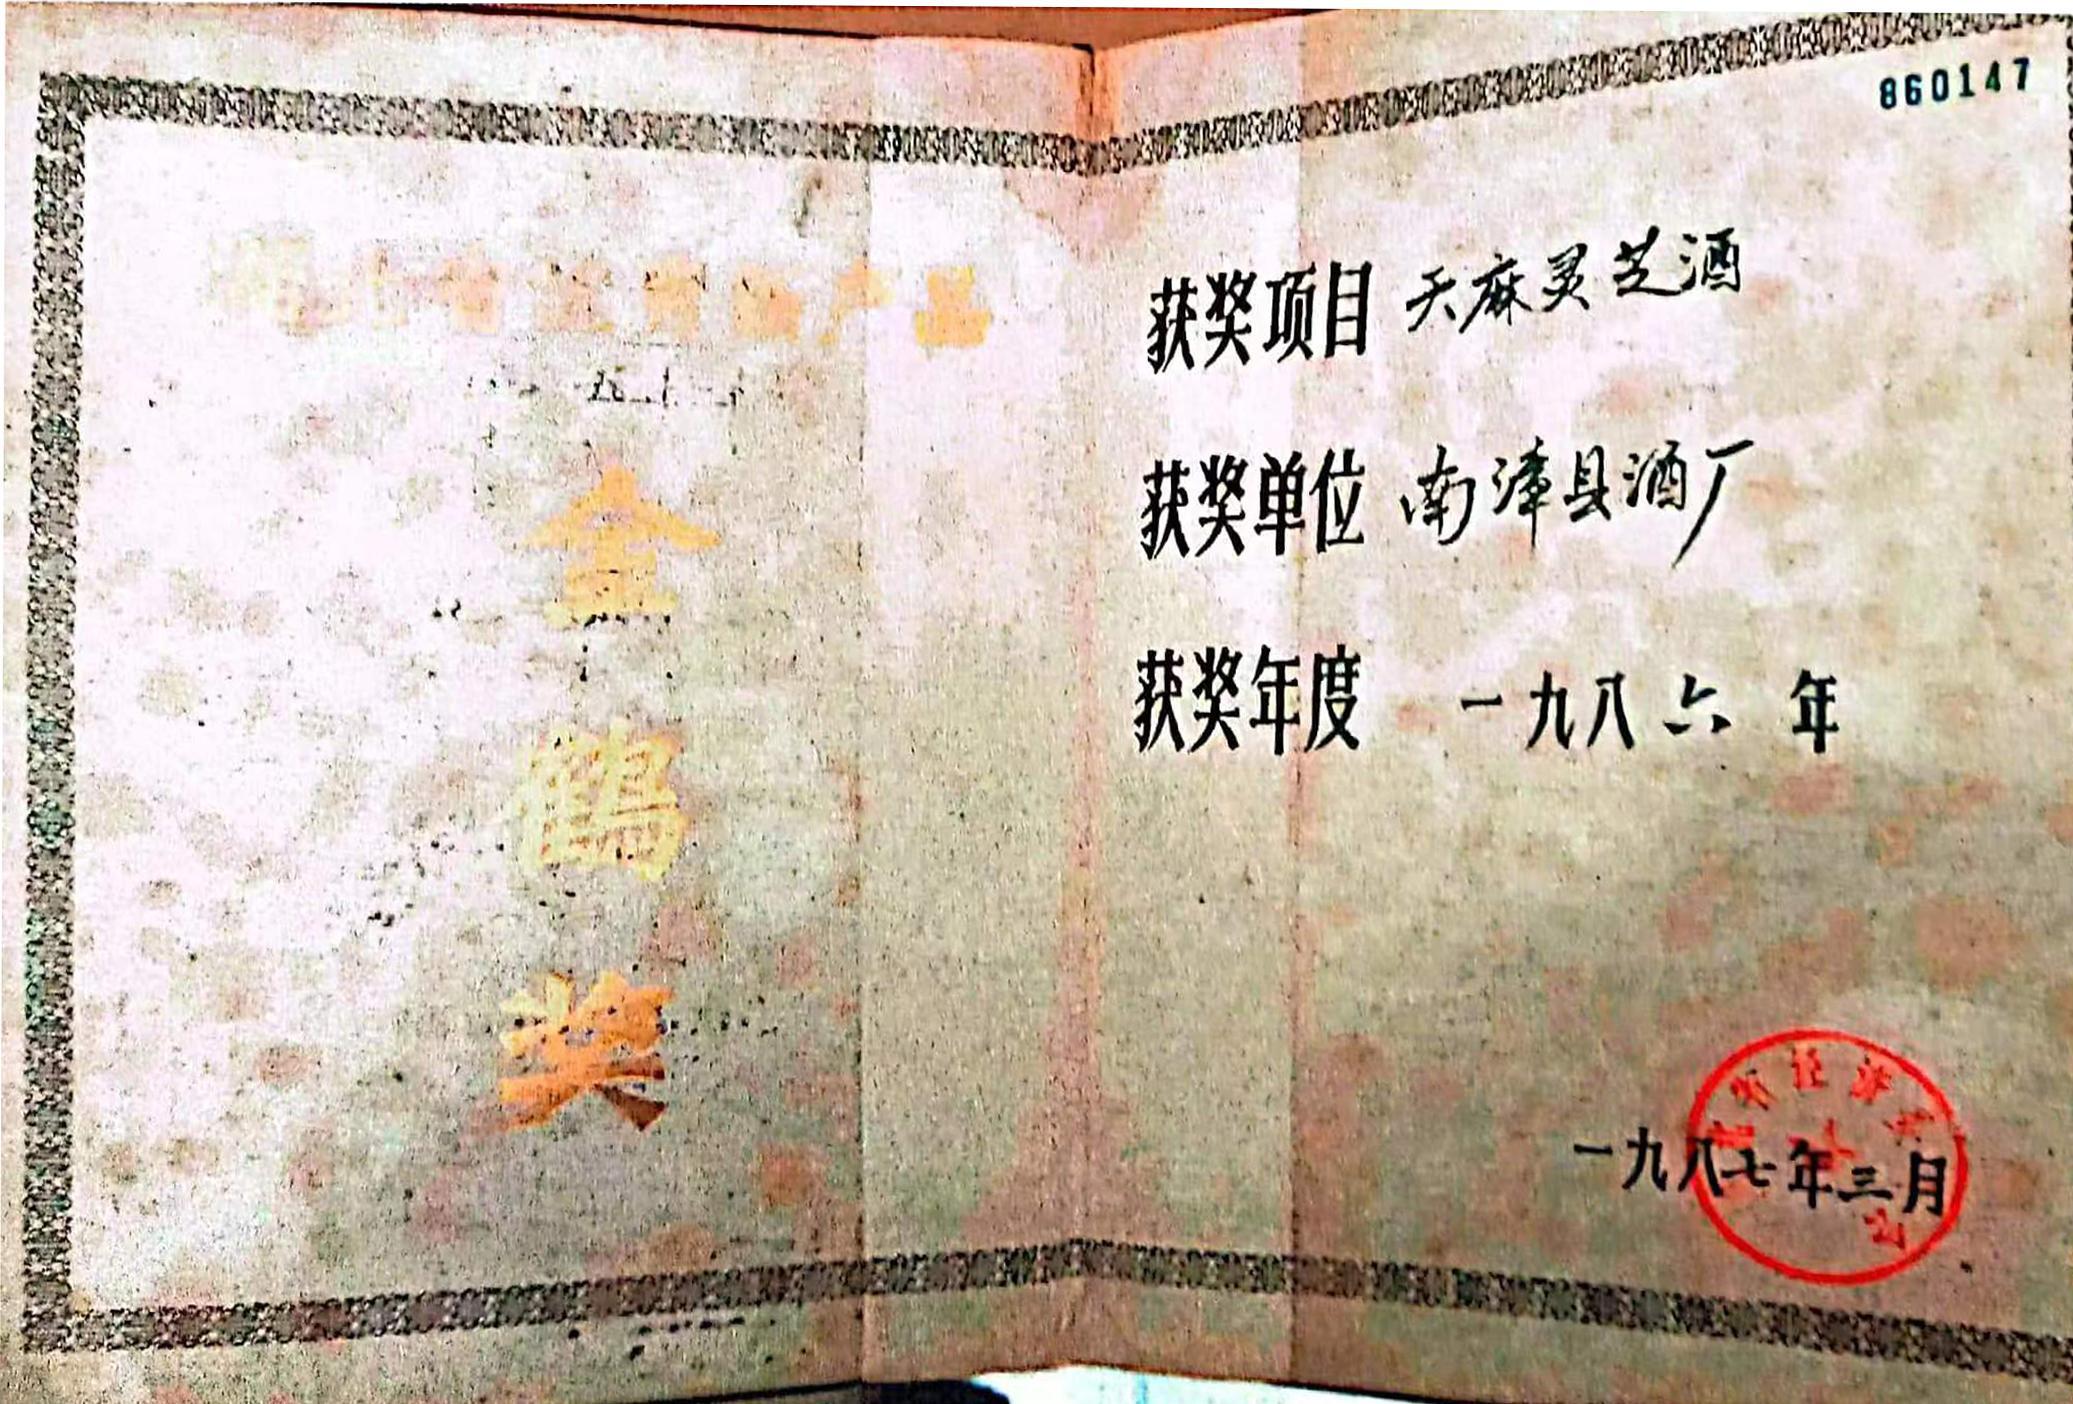 金
鹤
奖
860147
获奖项目 天麻灵芝酒
获奖单位 南漳县酒厂
获奖年度 一九八六 年
一九八七年三月